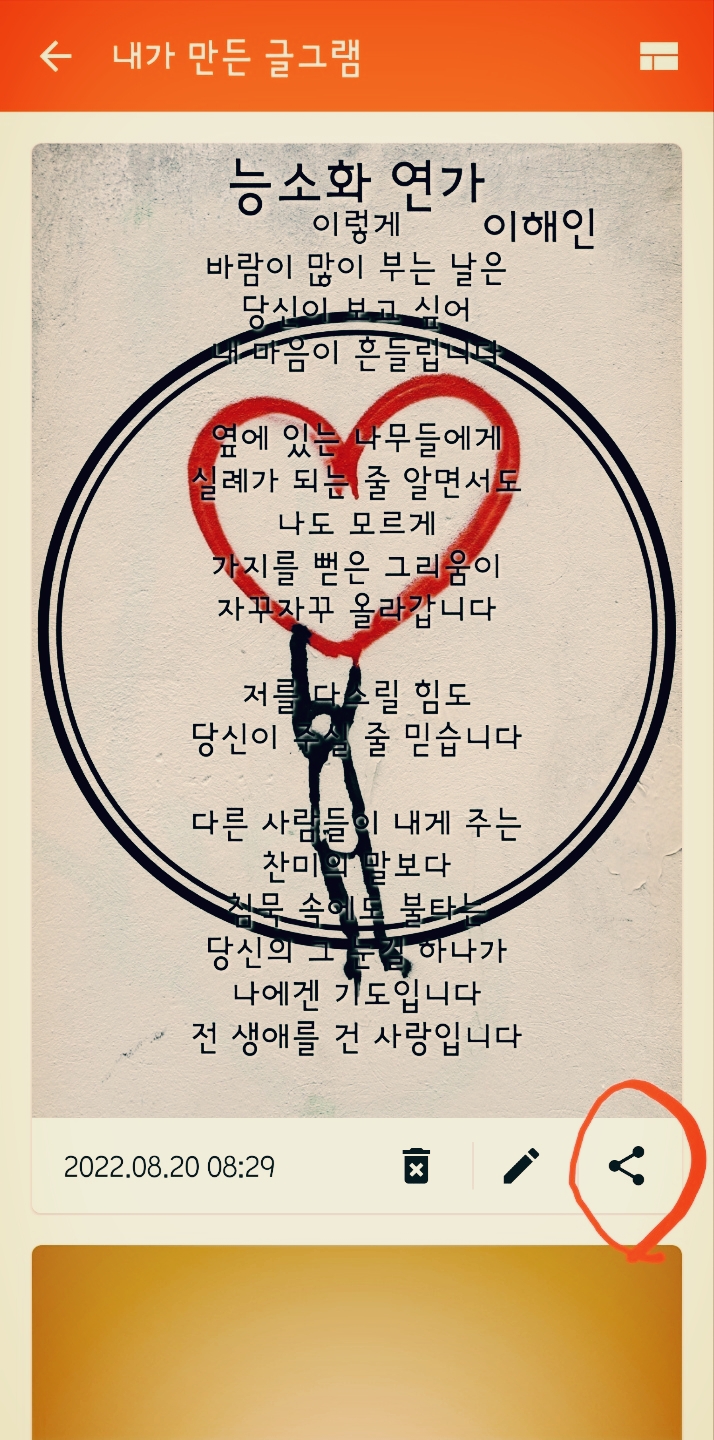 내가 만든 글그램
능소화 연가
이렇게 이해인
바람이 많이 부는 날은
당신이 보고 싶어
내 마음이 흔들립니다
옆에 있는 나무들에게
실례가 되는 줄 알면서도
나도 모르게
가지를 뻗은 그리움이
자꾸자꾸 올라갑니다
저를 다스릴 힘도
당신이 주실 줄 믿습니다
다른 사람들이 내게 주는
찬미의 말보다
침묵 속에도 불타는
당신의 그 눈길 하나가
나에겐 기도입니다
전 생애를 건 사랑입니다
2022.08.20 08:29